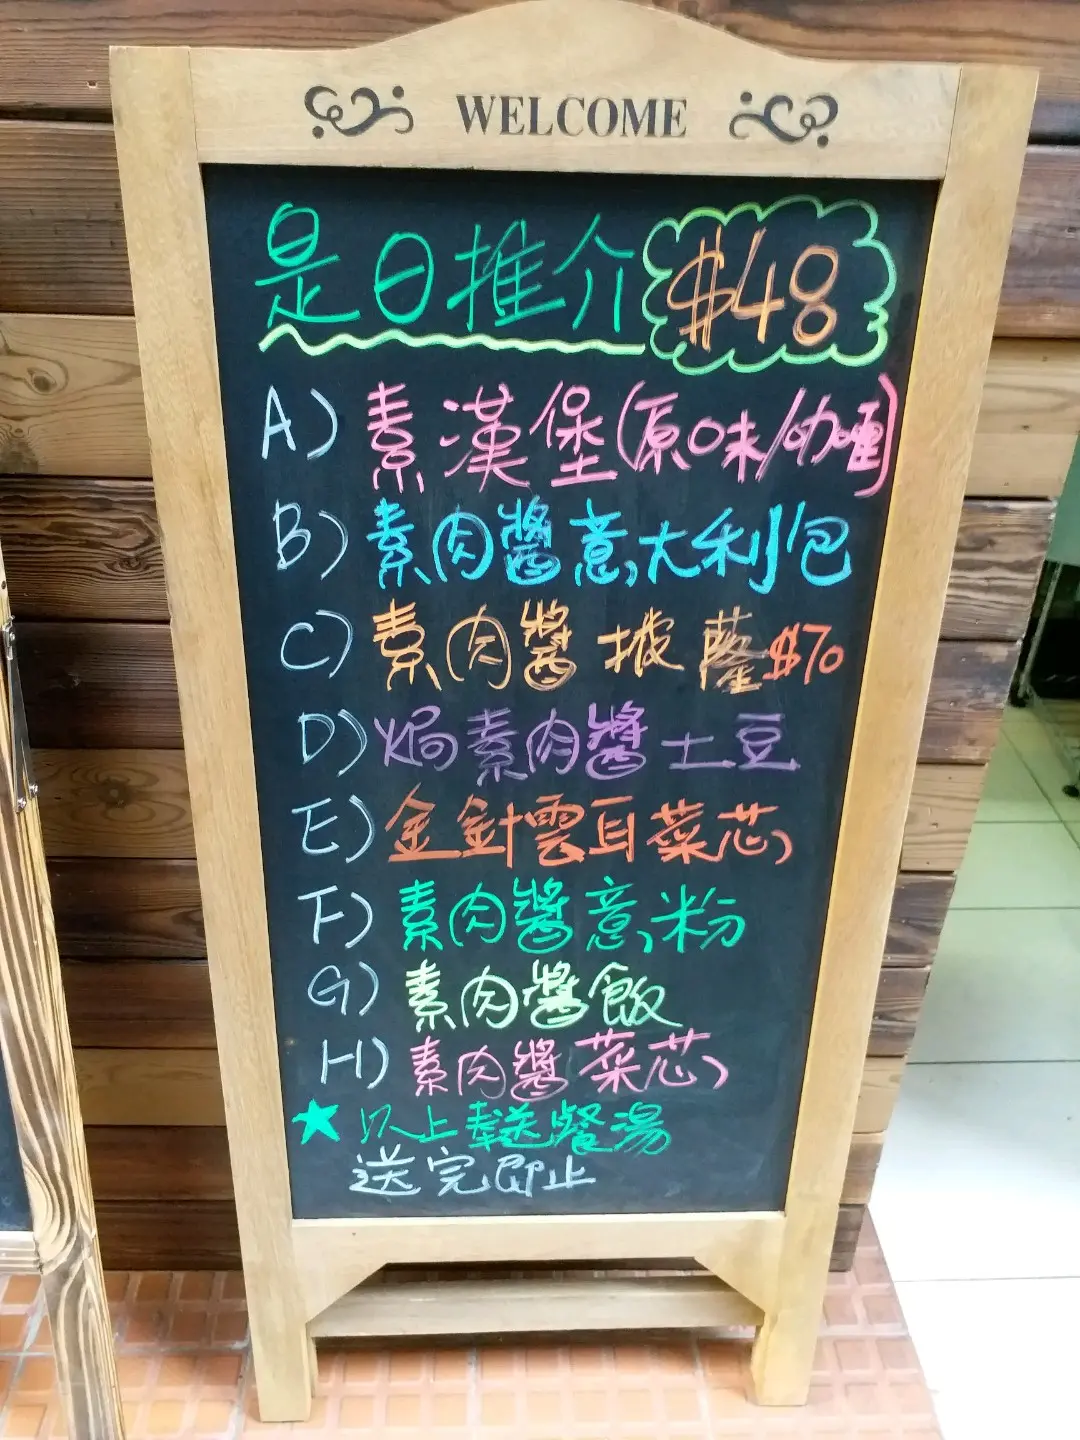 WELCOME
是日推介 $48
A) 素漢堡(原味/咖喱)
B) 素肉醬意大利包
C) 素肉醬披薩$70
D) 焗素肉醬土豆
E) 金針雲耳菜芯
F) 素肉醬意粉
G) 素肉醬飯
H) 素肉醬菜芯
★以上奉送餐湯
送完即止